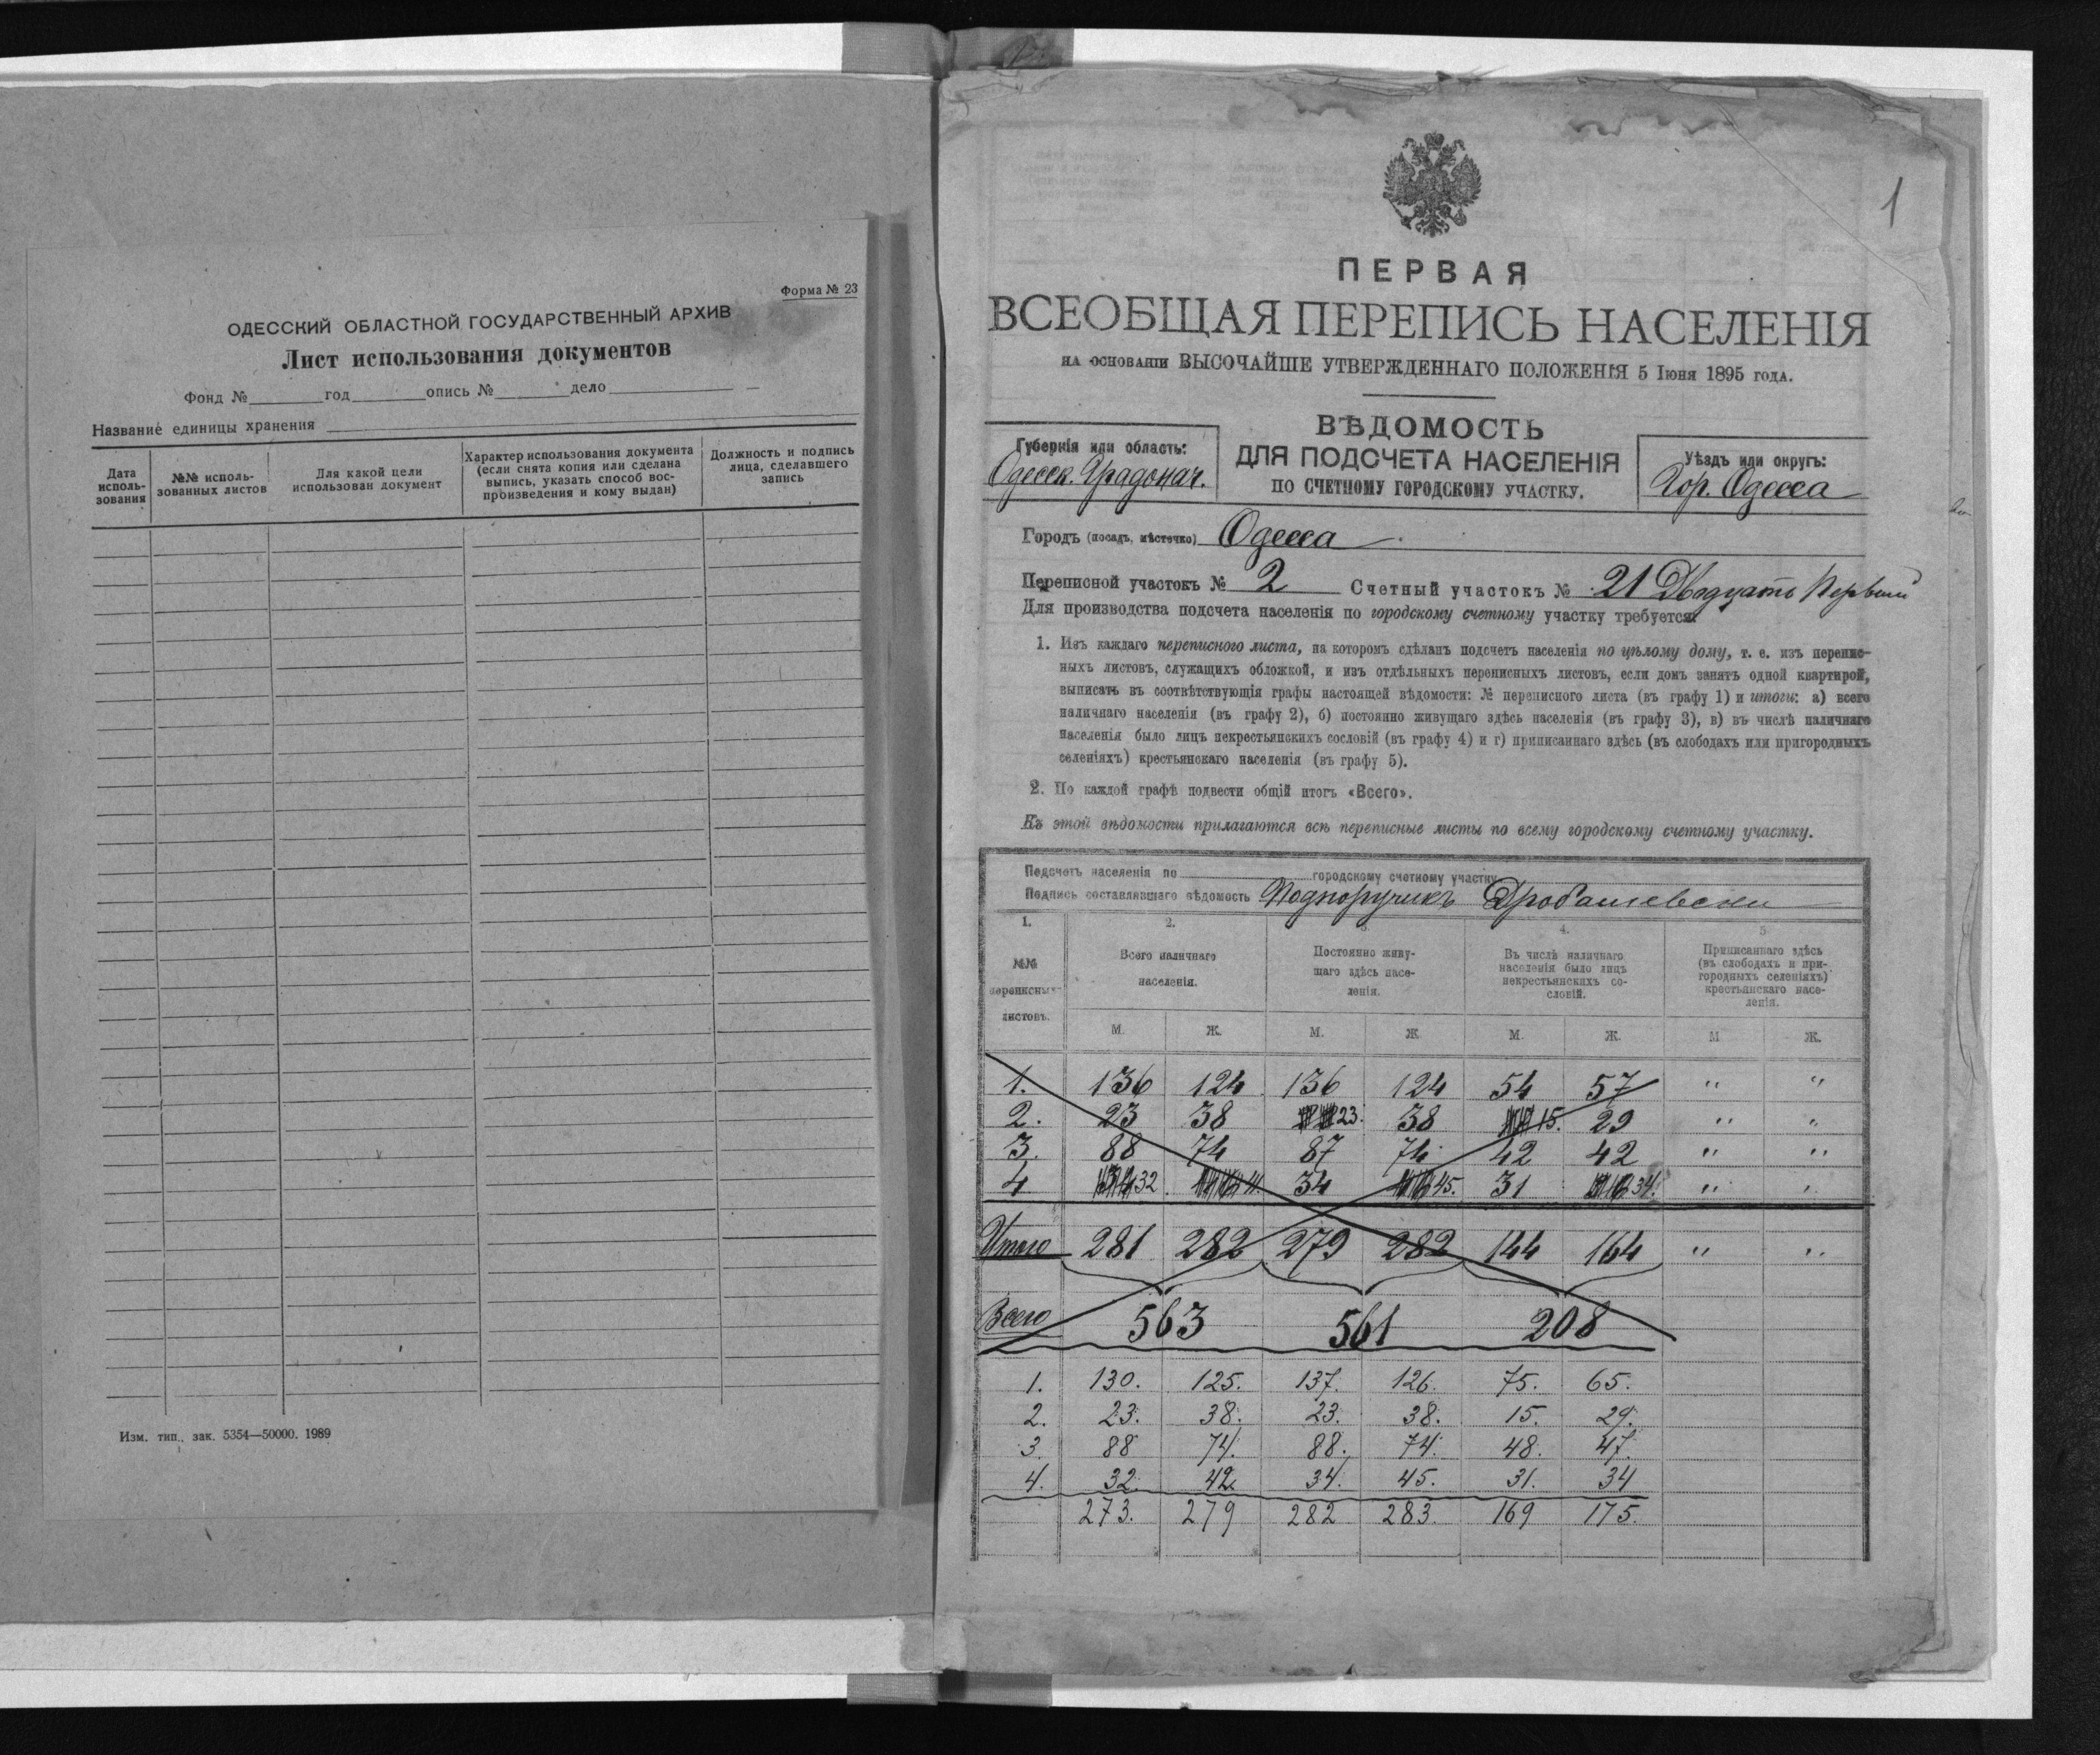 Форма № 23
ОДЕССКИЙ ОБЛАСТНОЙ ГОСУДАРСТВЕННЫЙ АРХИВ
Лист использования документов
Фонд № год опись № дело
Название единицы хранения
Дата исполь-зования
№№ исполь-зованных листов
Для какой цели использован документ
Характер использования документа (если снята копия или сделана выпись, указать способ вос-произведения и кому выдан)
Должность и подпись лица, сделавшего запись
Изм. тип., зак. 5354—50000. 1989
1
ПЕРВАЯ
ВСЕОБЩАЯ ПЕРЕПИСЬ НАСЕЛЕНІЯ
НА ОСНОВАНІИ ВЫСОЧАЙШЕ УТВЕРЖДЕННАГО ПОЛОЖЕНІЯ 5 Іюня 1895 ГОДА.
ВѢДОМОСТЬ
ДЛЯ ПОДСЧЕТА НАСЕЛЕНІЯ
ПО СЧЕТНОМУ ГОРОДСКОМУ УЧАСТКУ.
Губернія или область:
Одесск. Градонач.
Уѣздъ или округъ:
Гор. Одесса
Городъ (посадъ, мѣстечко) Одесса
Переписной участокъ № 2 Счетный участокъ № 21 Двадцать Первый
Для производства подсчета населенія по городскому счетному участку требуется:
1. Изъ каждаго переписного листа, на которомъ сдѣланъ подсчетъ населенія по цѣлому дому, т. е. изъ перепис-
ныхъ листовъ, служащихъ обложкой, и изъ отдѣльныхъ переписныхъ листовъ, если домъ занятъ одной квартирой,
выписать въ соотвѣтствующія графы настоящей вѣдомости: № переписного листа (въ графу 1) и итоги: а) всего
наличнаго населенія (въ графу 2), б) постоянно живущаго здѣсь населенія (въ графу 3), в) въ числѣ наличнаго
населенія было лицъ некрестьянскихъ сословій (въ графу 4) и г) приписаннаго здѣсь (въ слободахъ или пригородныхъ
селеніяхъ) крестьянскаго населенія (въ графу 5).
2. По каждой графѣ подвести общій итогъ «Всего».
Къ этой вѣдомости прилагаются всѣ переписные листы по всему городскому счетному участку.
Подсчетъ населенія по городскому счетному участку
Подпись составлявшаго вѣдомость Подпоручикъ
1. 2. 3. 4. 5
№№ переписныхъ листовъ.
Всего наличнаго населенія.
Постоянно живу-щаго здѣсь насе-ленія.
Въ числѣ наличнаго населенія было лицъ некрестьянскихъ со-словій.
Приписаннаго здѣсь (въ слободахъ и при-городныхъ селеніяхъ) крестьянскаго насе-ленія.
М. Ж. М. Ж М. Ж. М Ж.
1. 136 124 136 124 54 57 " "
2. 23 38 23. 38 15. 29 " "
3. 88 74 87 74 42 42 " "
4 32 34 45. 31 34. " "
Итого 281 282 279 282 144 164 " "
Всего 563 561 208
1. 130. 125. 137. 126. 75. 65.
2. 23. 38. 23. 38. 15. 29.
3. 88 74. 88. 74. 48. 47.
4. 32. 42. 34. 45. 31. 34
273. 279 282 283. 169 175.